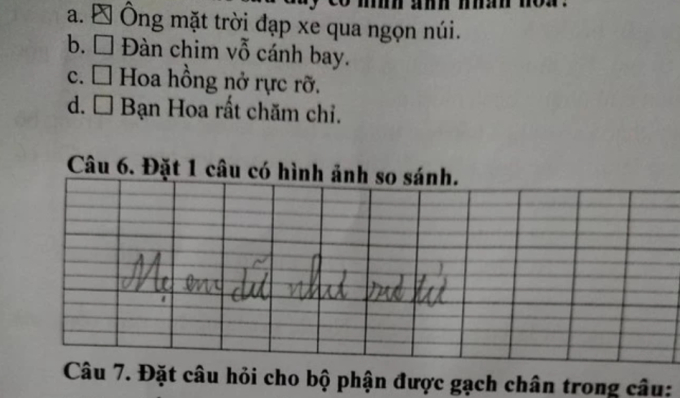 a. ☒ Ông mặt trời đạp xe qua ngọn núi.
b. ☐ Đàn chim vỗ cánh bay.
c. ☐ Hoa hồng nở rực rỡ.
d. ☐ Bạn Hoa rất chăm chỉ.
Câu 6. Đặt 1 câu có hình ảnh so sánh.
Mẹ em dữ như sư tử
Câu 7. Đặt câu hỏi cho bộ phận được gạch chân trong câu: